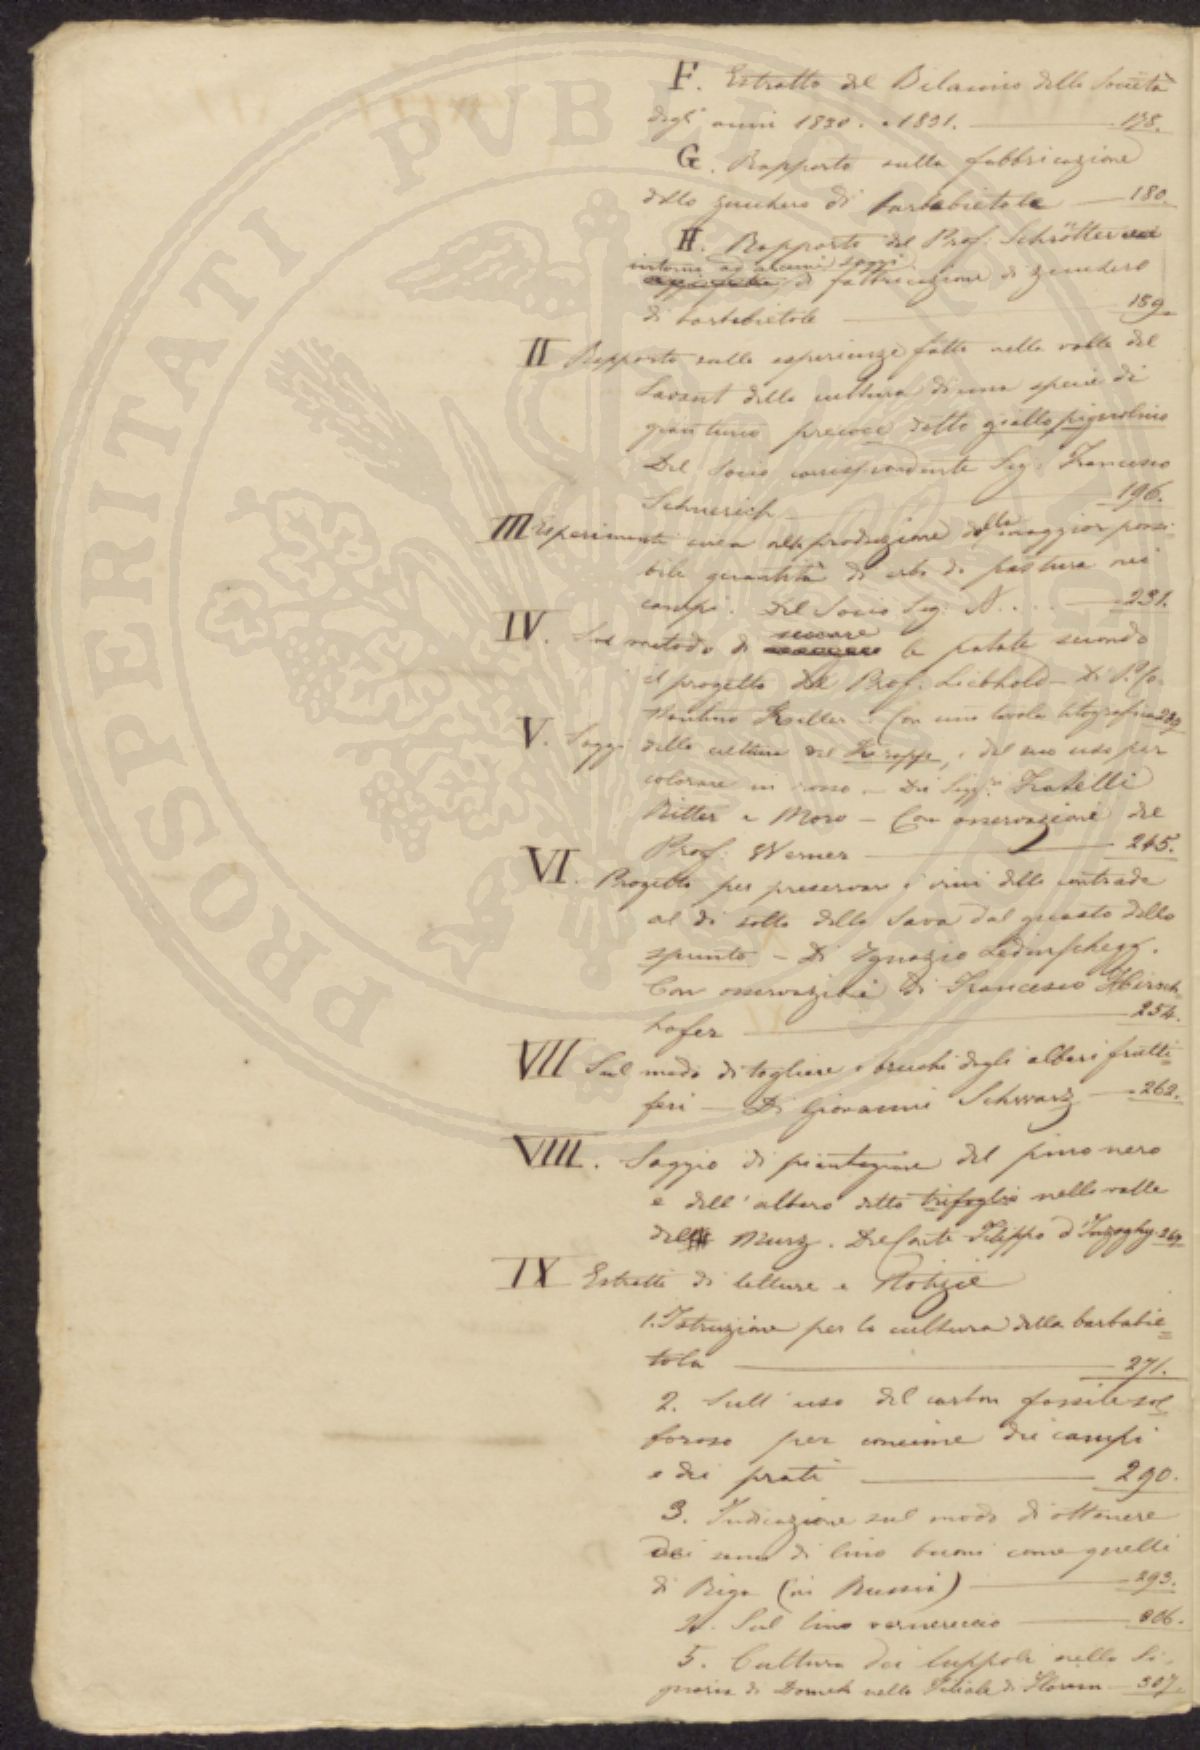 F. Estratto del Bilancio della Società
degl' anni 1830. e 1831. 178.
G. Rapporto sulla fabbricazione
dello zucchero di barbabietole 180.
H. Rapporto del Prof. Schrötter
intorno ad alcuni saggi
di fabbricazione di zucchero
di barbabietole 189.
II Rapporto sulle esperienze fatte nella valle del
Lavant della cultura di una specie di
gran turco precoce detto giallo pignolino
Del Socio corrispondente Sig. Francesco
196.
III Esperimenti circa alla produzione della maggior possi-
bile quantità di erba di pastura nei
campi. Del Socio Sig. N.... 231.
IV. Sul metodo di seccare le patate secondo
il progetto del Prof. Liebhold - Di
Con una tavola litografica 239
V. Saggi della cultura del e del suo uso per
colorare in rosso - Dei Sigg.ri Fratelli
Ritter e Moro - Con osservazioni del
Prof. Werner 245.
VI. Progetto per preservare i vini delle contrade
al di sotto della Sava dal guasto dello
spunto - Di Ignazio
Con osservazioni di Francesco Hirsch-
hofer 254.
VII Sul modo di togliere i bruchi degli alberi frutti-
feri - Di Giovanni Schwarz 262.
VIII. Saggio di piantagione del pino nero
e dell' albero detto trifoglio nella valle
Murz. Del Conte Filippo d' 269
IX Estratti di letture e Notizie
1. Istruzione per la cultura della barbabie-
tola 271.
2. Sull' uso del carbon fossile sol-
foroso per concime dei campi
e dei prati 290.
3. Indicazione sul modo di ottenere
dei semi di lino buoni come quelli
di Riga (in Russia) 293.
4. Sul lino vernereccio 306.
5. Cultura dei luppoli nella Si-
gnoria di nella Filiale di 307.
PROSPERITATI PUBLICAE